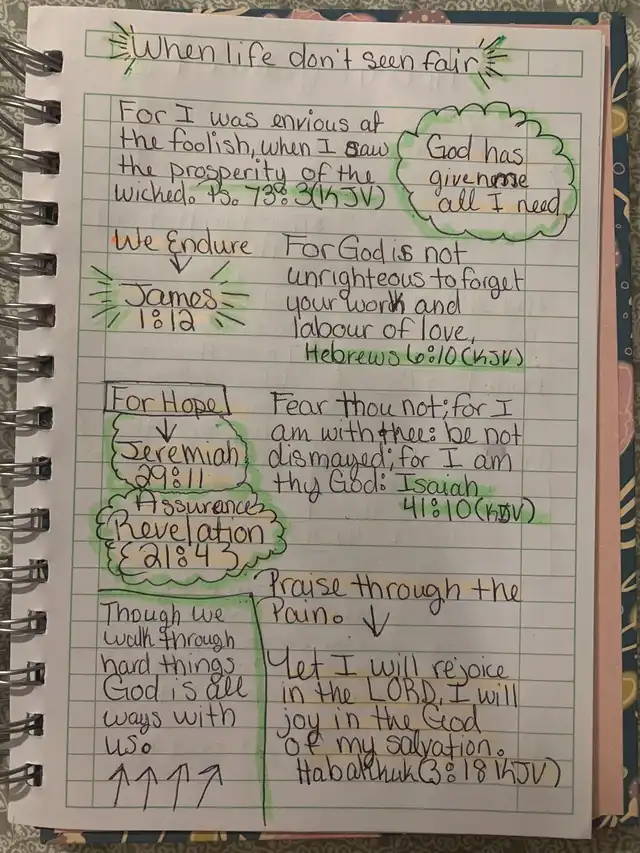 When life don't seen fair
For I was envious at
the foolish, when I saw
the prosperity of the
wicked. Ps. 73:3(KJV)
God has
given me
all I need
We Endure
James
1:12
For God is not
unrighteous to forget
your work and
labour of love,
Hebrews 6:10(KJV)
For Hope
Jeremiah
29:11
Assurance
Revelation
{21:4}
Fear thou not; for I
am with thee: be not
dismayed; for I am
thy God: Isaiah
41:10(KJV)
Praise through the
Pain.
Though we
walk through
hard things
God is all
ways with
us.
Yet I will rejoice
in the LORD, I will
joy in the God
of my salvation.
Habakkuk(3:18 KJV)